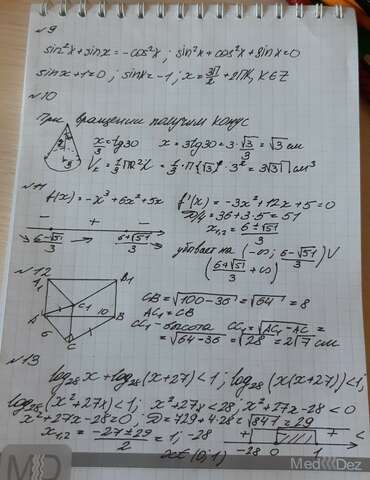 ~9
sin²x+sinx=-cos²x; sin²x+cos²x+sinx=0
sinx+1=0; sinx=-1; x=3П/2+2Пк, к∈Z
~10
При вращении получим конус
x/3=tg30 x=3tg30=3·√3/3=√3 см
V=1/3ПR²h=1/3·П(√3)²·3²=3√3П см³
~11 f(x)=-x³+6x²+5x f'(x)=-3x²+12x+5=0
D/4=36+3·5=51
x₁,₂=6±√51/3
- + -
6-√51/3 6+√51/3
убывает на (-∞; 6-√51/3)∪
(6+√51/3+∞)
~12
A₁ B₁ C₁
A B C
6 10
CB=√100-36=√64=8
AC₁=CB
CC₁-высота CC₁=√AC₁-AC=
=√64-36=√28=2√7 см
~13
log₂₈x+log₂₈(x+27)<1; log₂₈(x(x+27))<1;
log₂₈(x²+27x)<1; x²+27x<28; x²+27x-28<0
x²+27x-28=0; D=729+4·28=√841=29
x₁,₂=-27±29/2=1; -28
-28 0 1
x∈(0;1)
MD
MedDez